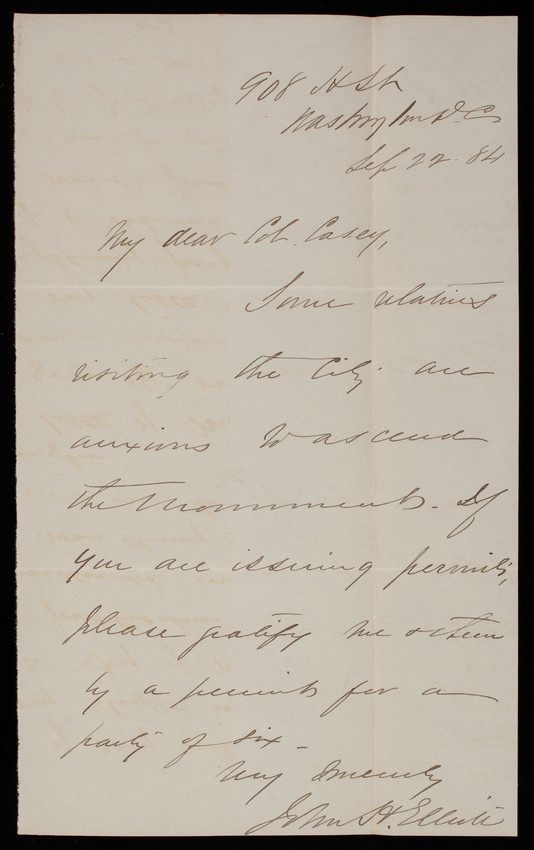 908 H St
Washington D.C.
Sep 22. 84
My dear Col. Casey,
Some relatives
visiting the City are
anxious to ascend
the Monument. If
you are issuing permits,
please gratify me & them
by a permit for a
party of six -
Very Sincerely
John H. Elliott